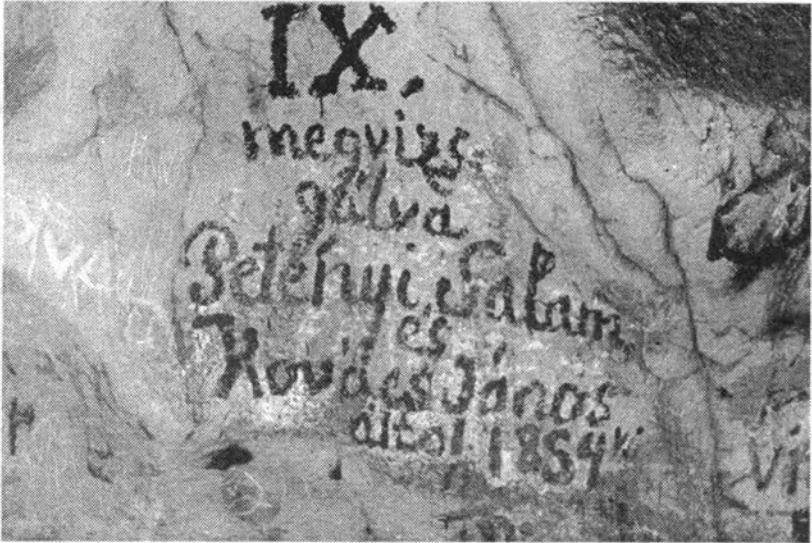 IX.
megvizs
gálva
Petényi Salam.
és
Kovács János
által 1854